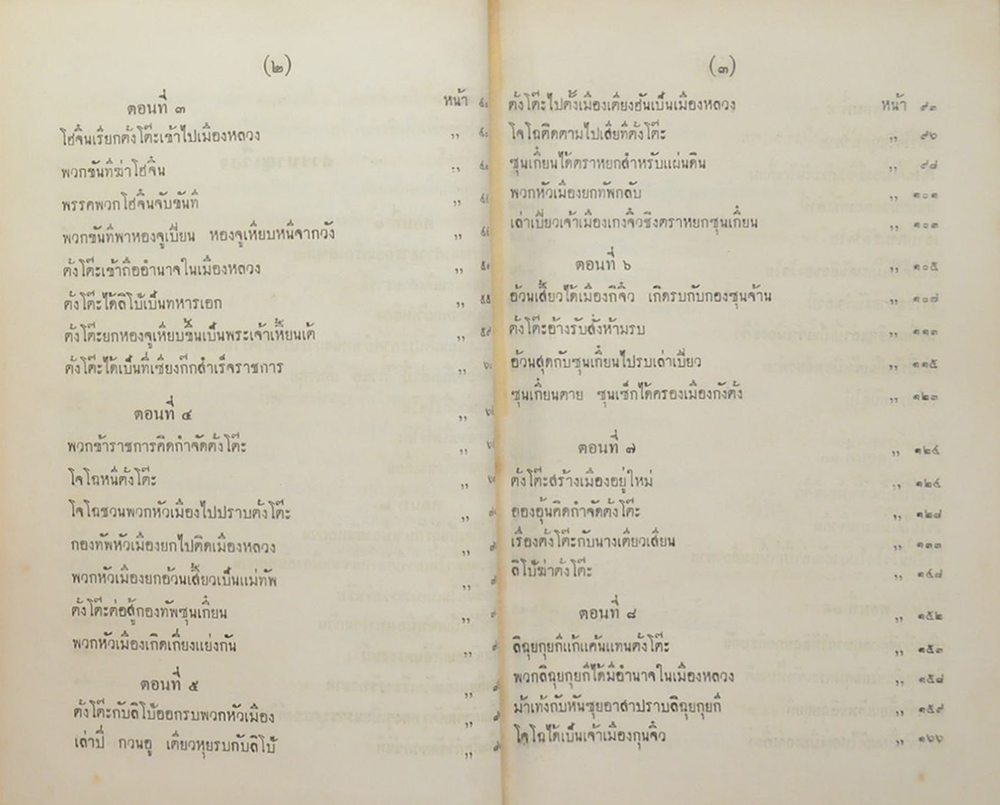 (๒)
ตอนที่ ๓
หน้า
โฮจิ๋นเรียกตั๋งโต๊ะเข้าไปเมืองหลวง ,,
พวกขันทีฆ่าโฮจิ๋น ,,
พรรคพวกโฮจิ๋นจับขันที ,,
พวกขันทีพาหองจูเปียน หองจูเหียบหนีจากวัง ,,
ตั๋งโต๊ะเข้าถืออำนาจในเมืองหลวง ,,
ตั๋งโต๊ะได้ลิโป้เป็นทหารเอก ,,
ตั๋งโต๊ะยกหองจูเหียบขึ้นเป็นพระเจ้าเหี้ยนเต้ ,,
ตั๋งโต๊ะได้เป็นที่เซียงก๊กสำเร็จราชการ ,,
ตอนที่ ๔ ,,
พวกข้าราชการคิดกำจัดตั๋งโต๊ะ ,,
โจโฉหนีตั๋งโต๊ะ ,,
โจโฉชวนพวกหัวเมืองไปปราบตั๋งโต๊ะ ,,
กองทัพหัวเมืองยกไปติดเมืองหลวง ,,
พวกหัวเมืองยกอ้วนเสี้ยวเป็นแม่ทัพ ,,
ตั๋งโต๊ะต่อสู้กองทัพซุนเกี๋ยน ,,
พวกหัวเมืองเกิดเกี่ยงแย่งกัน ,,
ตอนที่ ๕ ,,
ตั๋งโต๊ะกับลิโป้ออกรบพวกหัวเมือง ,,
เล่าปี่ กวนอู เตียวหุยรบกับลิโป้ ,,
(๓)
ตั๋งโต๊ะไปตั้งเมืองเตียงฮันเป็นเมืองหลวง หน้า ๙๓
โจโฉติดตามไปเสียทีตั๋งโต๊ะ ,, ๙๖
ซุนเกี๋ยนได้ตราหยกสำหรับแผ่นดิน ,, ๙๘
พวกหัวเมืองยกทัพกลับ ,, ๑๐๑
เล่าเปียวเจ้าเมืองเกงจิ๋วชิงตราหยกซุนเกี๋ยน ,, ๑๐๓
ตอนที่ ๖ ,, ๑๐๕
อ้วนเสี้ยวได้เมืองกิจิ๋ว เกิดรบกับกองซุนจ้าน ,, ๑๐๗
ตั๋งโต๊ะอ้างรับสั่งห้ามรบ ,, ๑๑๓
อ้วนสุดกับซุนเกี๋ยนไปรบเล่าเปียว ,, ๑๑๕
ซุนเกี๋ยนตาย ซุนเซ็กได้ครองเมืองกังตั๋ง ,, ๑๒๓
ตอนที่ ๗ ,, ๑๒๔
ตั๋งโต๊ะสร้างเมืองอยู่ใหม่ ,, ๑๒๔
อองอุ้นคิดกำจัดตั๋งโต๊ะ ,, ๑๒๘
เรื่องตั๋งโต๊ะกับนางเตียวเสียน ,, ๑๓๓
ลิโป้ฆ่าตั๋งโต๊ะ ,, ๑๔๘
ตอนที่ ๘ ,, ๑๕๒
ลิฉุยกุยกีแก้แค้นแทนตั๋งโต๊ะ ,, ๑๕๓
พวกลิฉุยกุยกีได้มีอำนาจในเมืองหลวง ,, ๑๕๘
ม้าเท้งกับหันซุยอาสาปราบลิฉุยกุยกี ,, ๑๕๙
โจโฉได้เป็นเจ้าเมืองกุนจิ๋ว ,, ๑๖๖